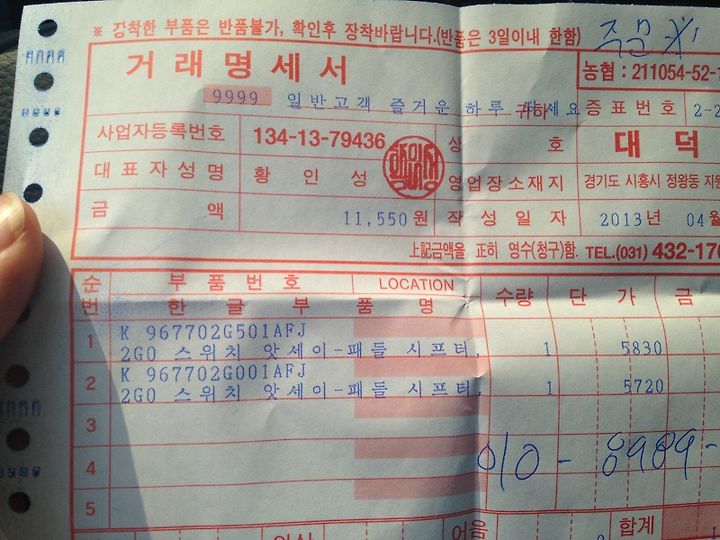 ※ 장착한 부품은 반품불가, 확인후 장착바랍니다.(반품은 3일이내 한함)
거래명세서
농협 : 211054-52-1
9999 일반고객 즐거운하루 귀하 증표번호 2-2
사업자등록번호 134-13-79436 상 호 대덕
대표자성명 황인성 영업장소재지 경기도 시흥시 정왕동
금 액 11,550원 작성일자 2013년 04월
上記금액을 正히 영수(청구)함. TEL.(031) 432-170
순번 부품번호 LOCATION 수량 단가 금
한글부품명
1 K 967702G501AFJ
2G0 스위치 앗세이-패들 시프터, 1 5830
2 K 967702G001AFJ
2G0 스위치 앗세이-패들 시프터, 1 5720
3
4 010-8989-
5
합계